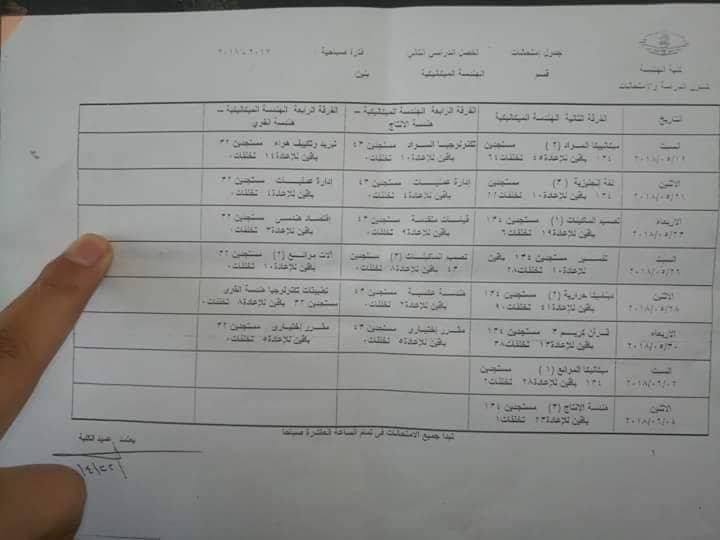 كلية الهندسة
شئون الدراسة والامتحانات
جدول إمتحانات الفصل الدراسي الثاني فترة صباحية ٢٠١٧ - ٢٠١٨
قسم الهندسة الميكانيكية بنين
التاريخ
الفرقة الثانية الهندسة الميكانيكية
الفرقة الرابعة الهندسة الميكانيكية –
هندسة الانتاج
الفرقة الرابعة الهندسة الميكانيكية –
هندسة القوي
السبت
٢٠١٨/٠٥/١٩
ميكانيكا المواد (٢) مستجدين
١٣٤ باقين للإعادة ٤٥ تخلفات ٦٤
تكنولوجيا المواد مستجدين ٤٣
باقين للإعادة ١٠ تخلفات ٠
تبريد وتكييف هواء مستجدين ٣٢
باقين للإعادة ١٤ تخلفات ٠
الاثنين
٢٠١٨/٠٥/٢١
لغة انجليزية (٣) مستجدين
١٣٤ باقين للإعادة ١٠ تخلفات
إدارة عمليات مستجدين ٤٣
باقين للإعادة ٤ تخلفات ٠
إدارة عمليات مستجدين ٣٢
باقين للإعادة ٤ تخلفات ٠
الاربعاء
٢٠١٨/٠٥/٢٣
تصميم الماكينات (١) مستجدين ١٣٤
باقين للإعادة ١٩ تخلفات ٦
قياسات متقدمة مستجدين ٤٣
باقين للإعادة ٩ تخلفات ٠
إقتصاد هندسي مستجدين ٣٢
باقين للإعادة ٣ تخلفات ٠
السبت
٢٠١٨/٠٥/٢٦
تفسير مستجدين ١٣٤ باقين
للإعادة ١٠ تخلفات ٢٨
تصميم الماكينات (٣) مستجدين
٤٣ باقين للإعادة ٨ تخلفات ٠
آلات موائع (٢) مستجدين ٣٢
باقين للإعادة ١٠ تخلفات ٠
الاثنين
٢٠١٨/٠٥/٢٨
ديناميكا حرارية (٢) مستجدين ١٣٤
باقين للإعادة ٤١ تخلفات ٩٠
هندسة عكسية مستجدين ٤٣
باقين للإعادة ٢ تخلفات ٠
تطبيقات تكنولوجيا هندسة القوي
مستجدين ٣٢ باقين للإعادة ٨ تخلفات ٠
الاربعاء
٢٠١٨/٠٥/٣٠
قرآن كريم ٣ مستجدين ١٣٤
باقين للإعادة ١٣ تخلفات ٣٨
مقرر إختياري مستجدين ٤٣
باقين للإعادة ٥ تخلفات ٠
مقرر إختياري مستجدين ٣٢
باقين للإعادة ٥ تخلفات ٠
السبت
٢٠١٨/٠٦/٠٢
ميكانيكا الموائع (١) مستجدين
١٣٤ باقين للإعادة ٢٨ تخلفات ٢
الاثنين
٢٠١٨/٠٦/٠٤
هندسة الانتاج (٣) مستجدين ١٣٤
باقين للإعادة ٢٣ تخلفات ١
تبدأ جميع الامتحانات في تمام الساعة العاشرة صباحا
يعتمد عميد الكلية
١